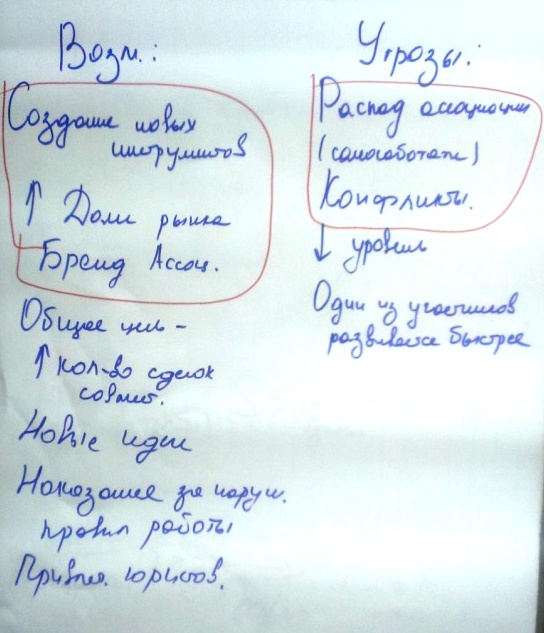 Возм.:
Создание новых
инструментов
↑ Доли рынка
Бренд Ассоц.
Общее цель -
↑ кол-во сделок
совмест.
Новые идеи
Наказание за наруш.
правил работы
Привлеч. юристов.
Угрозы:
Распад ассоциации
(самосаботаж)
Конфликты.
↓ уровень
Один из участников
развивается быстрее